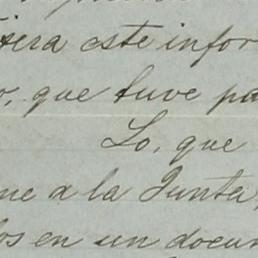 iera este infor
o, que tuve pa
Lo, que
me a la Junta,
os en un docum